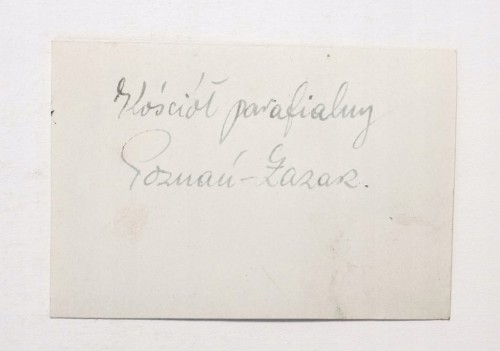 Kościół parafialny
Poznań-Łazarz.